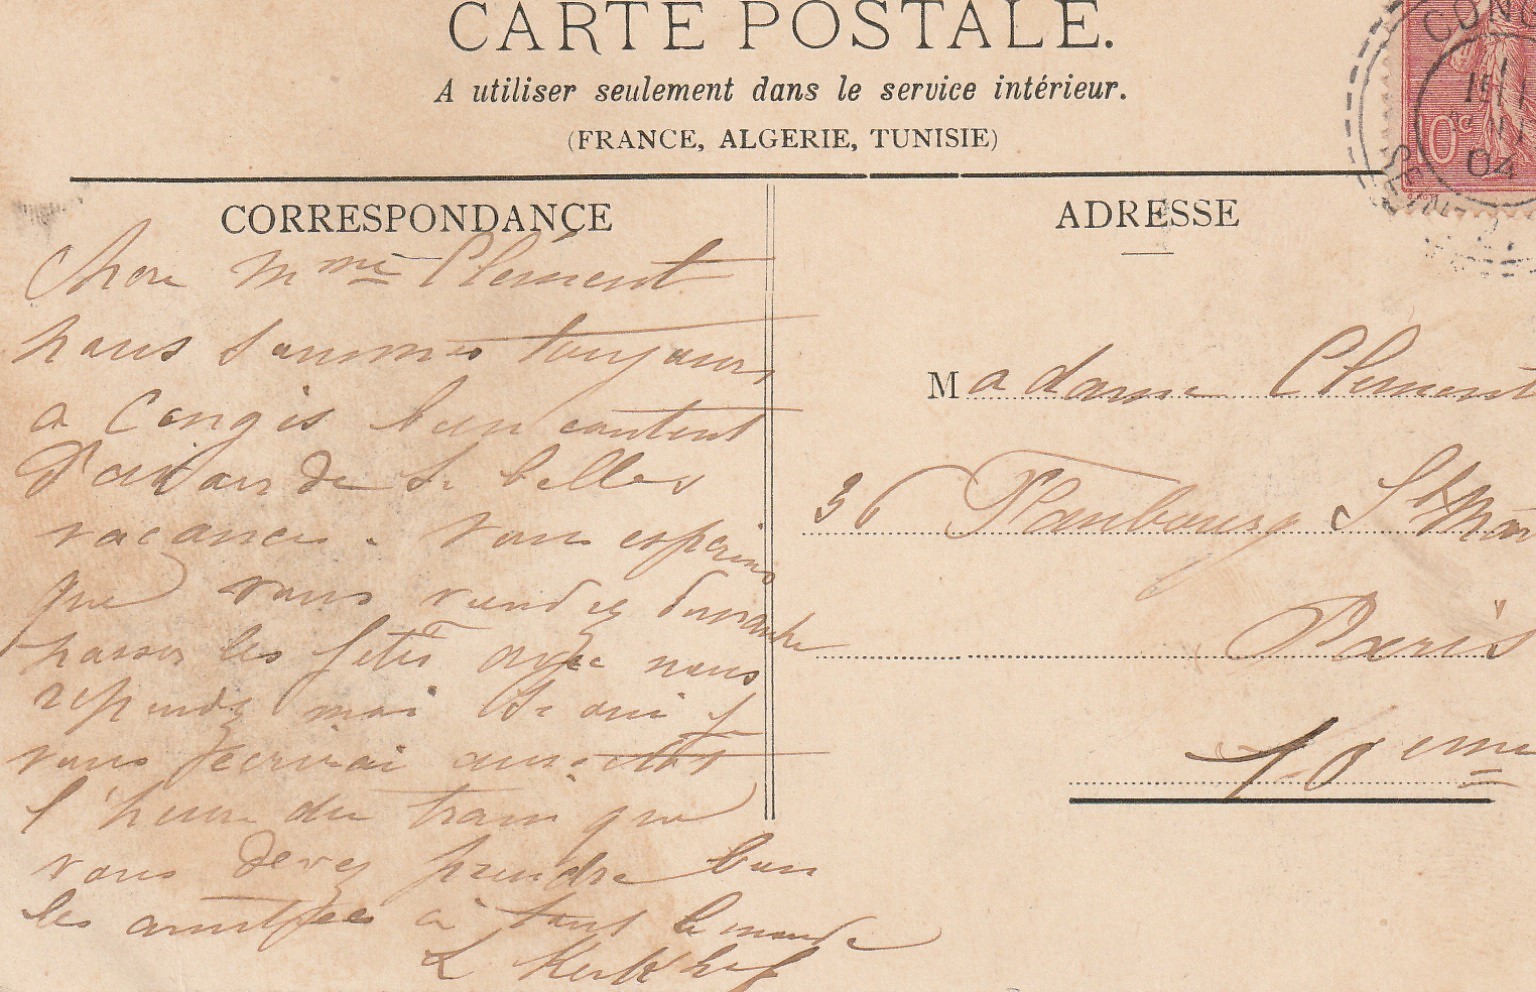 CARTE POSTALE.
A utiliser seulement dans le service intérieur.
(FRANCE, ALGERIE, TUNISIE)
CORRESPONDANCE
Chere Mme Clément
nous sommes toujours
a Congis bien content
d'avoir de si belles
vacances. nous esperons
que vous viendez dimanche
passer les fêtes avec nous
repondez moi si oui je
vous écrirai aussitot
l'heure du train que
vous devez prendre bien
les amitiées à tout le monde
L Kerkhof
ADRESSE
Madame Clement
36 Faubourg St Mar
Paris
10eme
CON
15
04
SEIN
0c